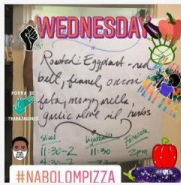 WEDNESDAY
Roasted Eggplant - red
bell, fennel, onion
feta, mozzarella,
garlic olive oil herbs
11:30-2 11:30
#NABOLOMPIZZA